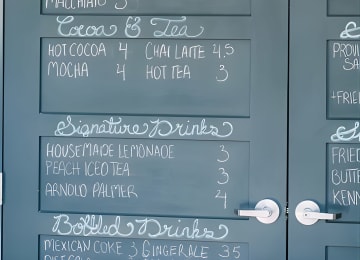 MACCHIATO 3
Cocoa & Tea
HOT COCOA 4 CHAI LAITE 4.5
MOCHA 4 HOT TEA 3
Signature Drinks
HOUSEMADE LEMONADE 3
PEACH ICED TEA 3
ARNOLD PALMER 4
Bottled Drinks
MEXICAN COKE 3 GINGERALE 3.5